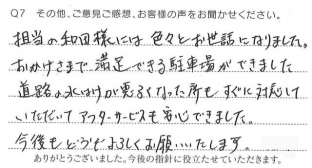 Q7 その他、ご意見ご感想、お客様の声をお聞かせください。
担当の和田様には色々とお世話になりました。
おかげさまで満足できる駐車場ができました
道路の水はけが悪くなった所もすぐに対応して
いただいてアフターサービスも安心できました。
今後もどうぞよろしくお願いいたします。
ありがとうございました。今後の指針に役立たせていただきます。